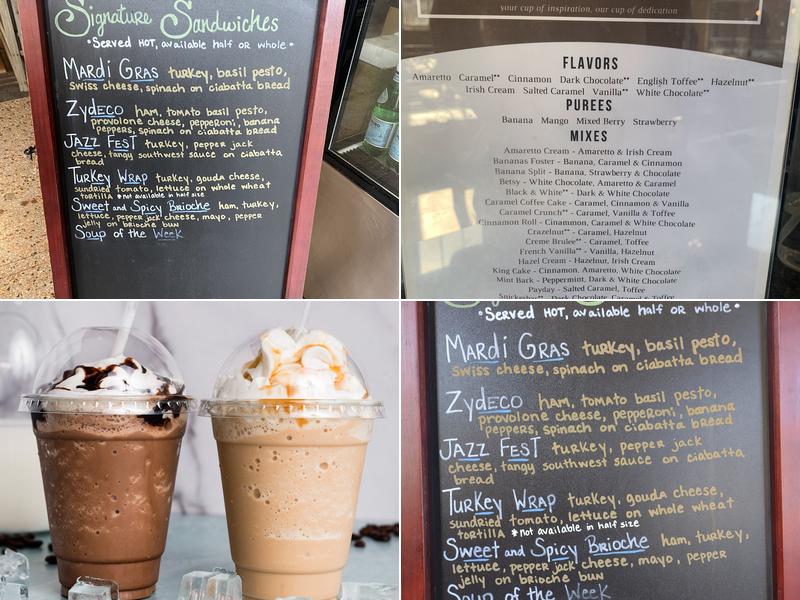 Signature Sandwiches
•Served HOT, available half or whole•
Mardi Gras turkey, basil pesto,
Swiss cheese, spinach on ciabatta bread
Zydeco ham, tomato basil pesto,
provolone cheese, pepperoni, banana
peppers, spinach on ciabatta bread
Jazz Fest turkey, pepper jack
cheese, tangy southwest sauce on ciabatta
bread
Turkey Wrap turkey, gouda cheese,
sundried tomato, lettuce on whole wheat
tortilla *not available in half size
Sweet and Spicy Brioche ham, turkey,
lettuce, pepper jack cheese, mayo, pepper
jelly on brioche bun
Soup of the Week
your cup of inspiration, our cup of dedication
FLAVORS
Amaretto Caramel** Cinnamon Dark Chocolate** English Toffee** Hazelnut**
Irish Cream Salted Caramel Vanilla** White Chocolate**
PUREES
Banana Mango Mixed Berry Strawberry
MIXES
Amaretto Cream - Amaretto & Irish Cream
Bananas Foster - Banana, Caramel & Cinnamon
Banana Split - Banana, Strawberry & Chocolate
Betsy - White Chocolate, Amaretto & Caramel
Black & White** - Dark & White Chocolate
Caramel Coffee Cake - Caramel, Cinnamon & Vanilla
Caramel Crunch** - Caramel, Vanilla & Toffee
Cinnamon Roll - Cinnamon, Caramel & White Chocolate
Crazelnut** - Caramel, Hazelnut
Creme Brulee** - Caramel, Toffee
French Vanilla** - Vanilla, Hazelnut
Hazel Cream - Hazelnut, Irish Cream
King Cake - Cinnamon, Amaretto, White Chocolate
Mint Bark - Peppermint, Dark & White Chocolate
Payday - Salted Caramel, Toffee
Snickerbar** - Dark Chocolate, Caramel & Toffee
•Served HOT, available half or whole•
Mardi Gras turkey, basil pesto,
Swiss cheese, spinach on ciabatta bread
Zydeco ham, tomato basil pesto,
provolone cheese, pepperoni, banana
peppers, spinach on ciabatta bread
Jazz Fest turkey, pepper jack
cheese, tangy southwest sauce on ciabatta
bread
Turkey Wrap turkey, gouda cheese,
sundried tomato, lettuce on whole wheat
tortilla *not available in half size
Sweet and Spicy Brioche ham, turkey,
lettuce, pepper jack cheese, mayo, pepper
jelly on brioche bun
Soup of the Week